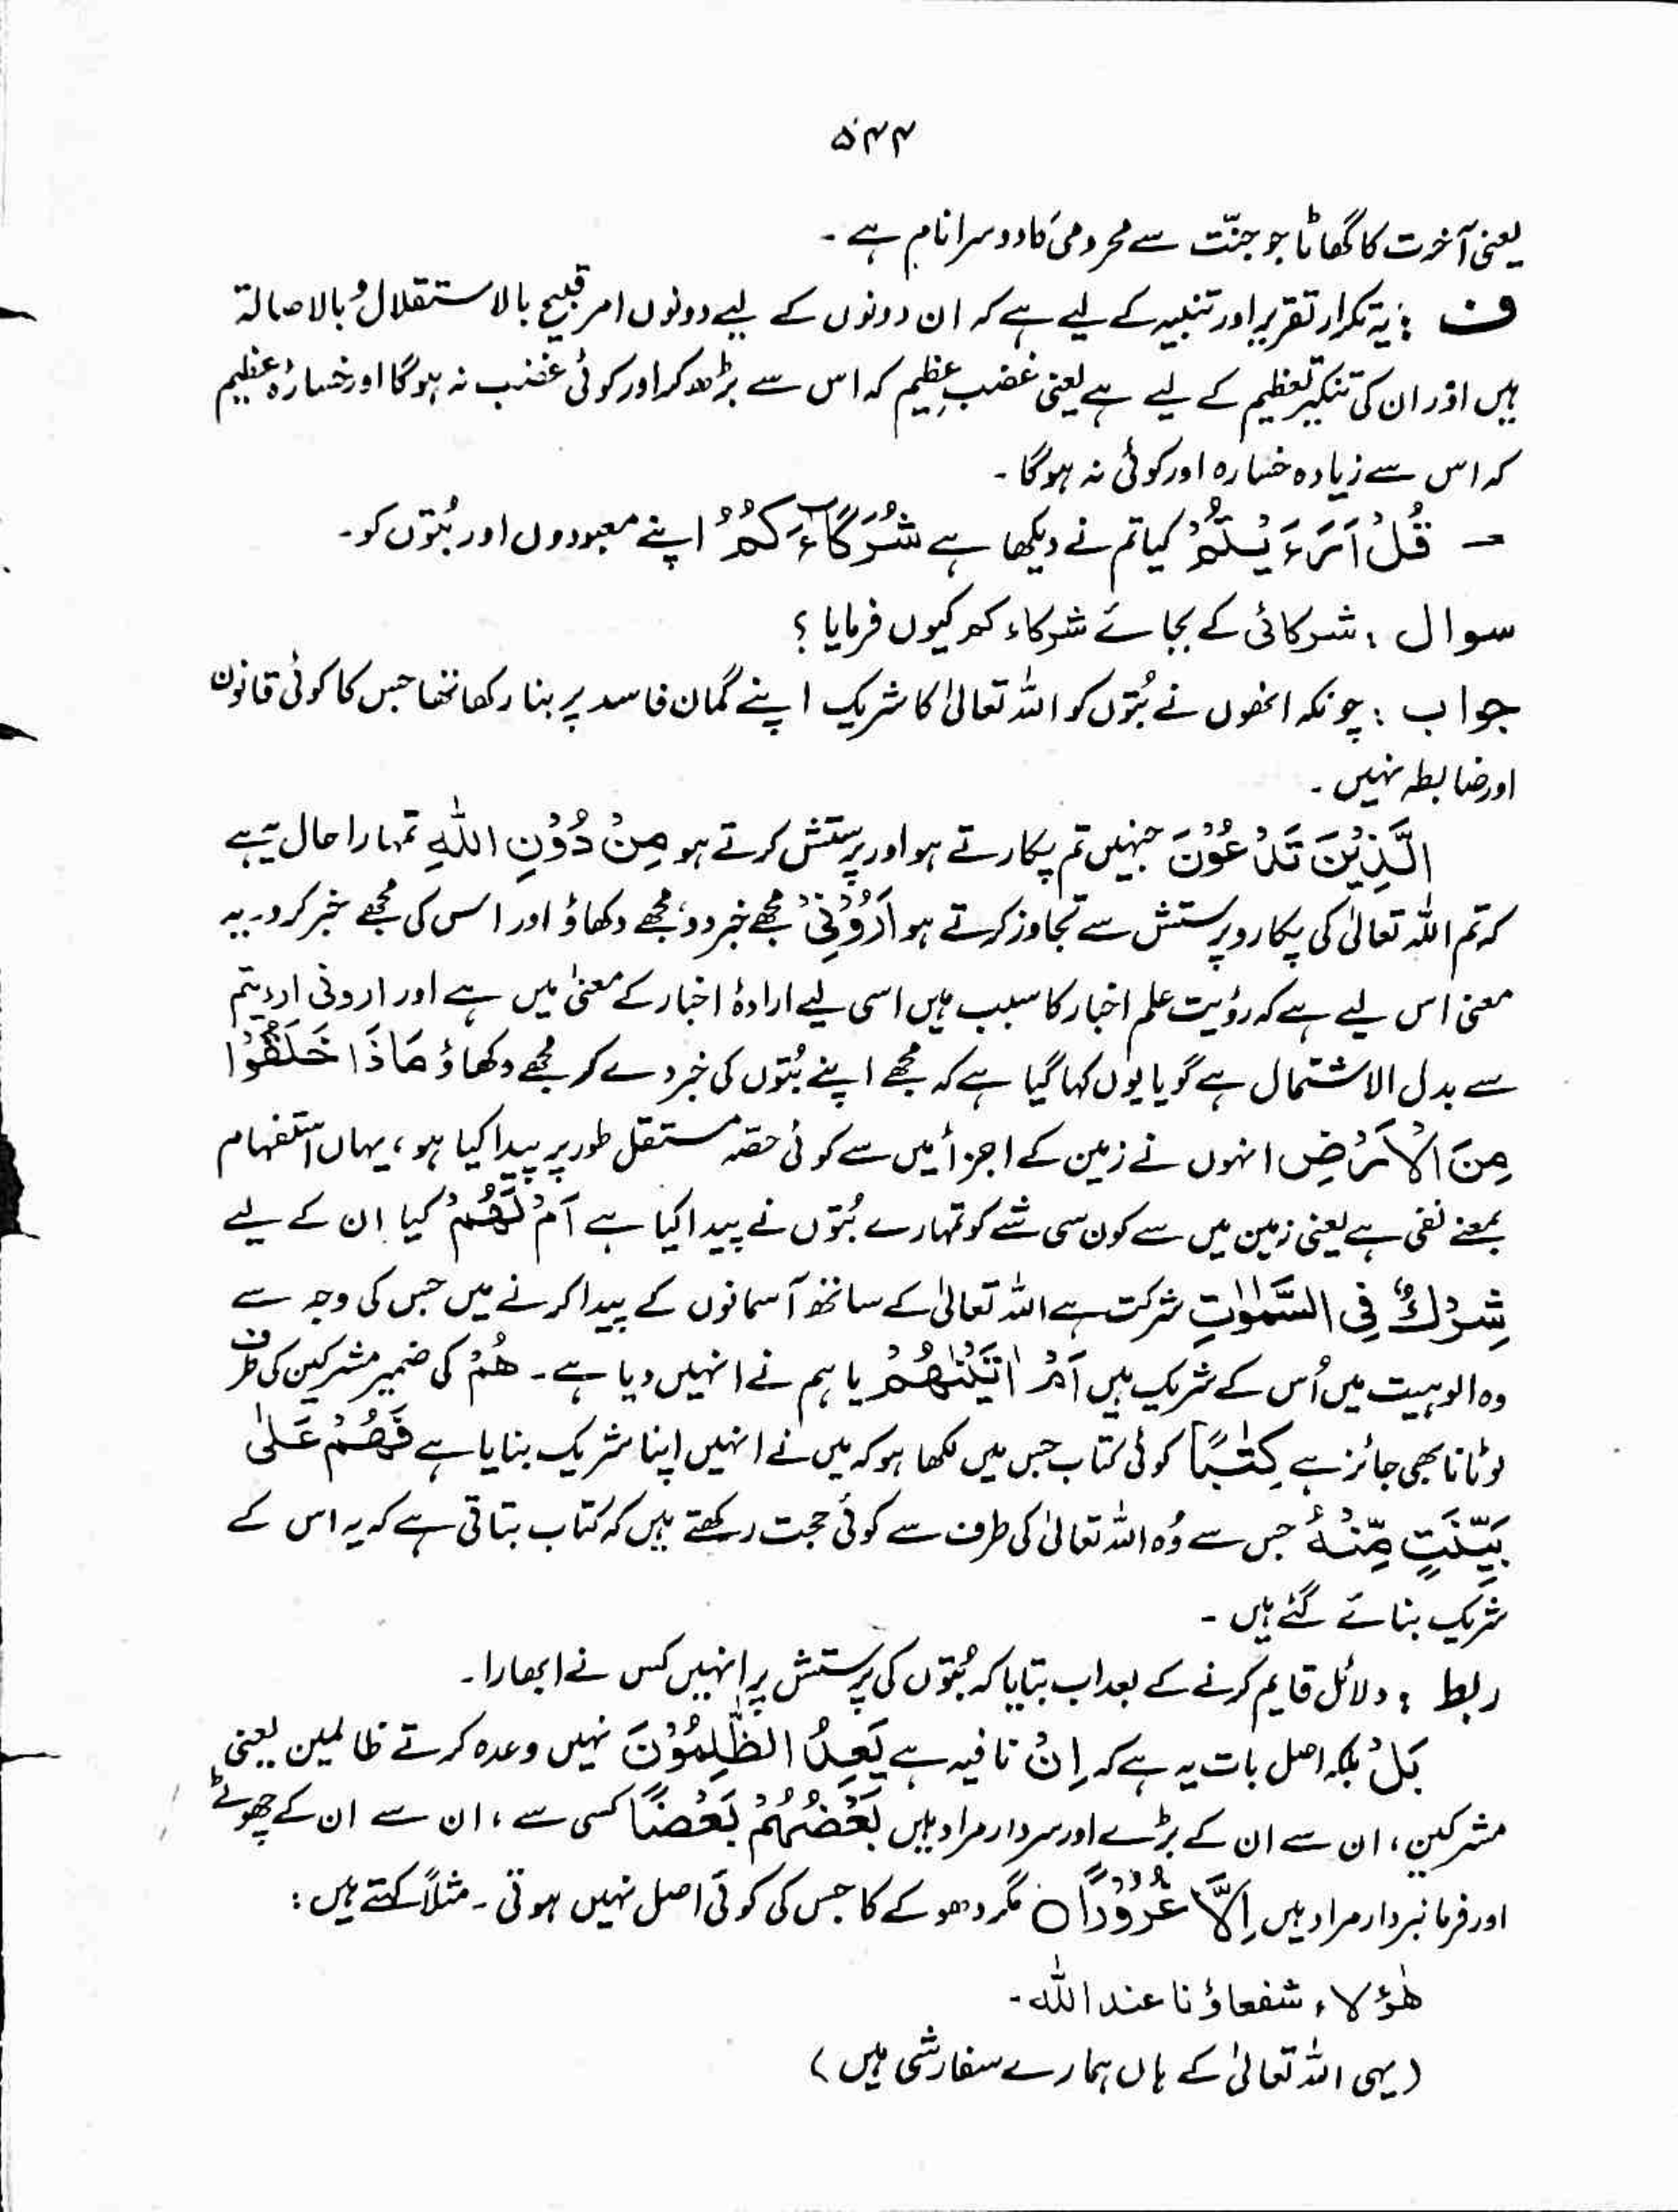 ۵۴۴
یعنی آخرت کا گھاٹا جو جنّت سے محرومی کا دوسرا نام ہے ۔
ف : یہ تکرار تقریر اور تنبیہ کے لیے ہے کہ ان دونوں کے لیے دونوں امر قبیح بالاستقلال و بالاصالۃ
ہیں اور ان کی تنکیر تعظیم کے لیے ہے یعنی غضبِ عظیم کہ اس سے بڑھ کر اور کوئی غضب نہ ہو گا اور خسارہ عظیم
کہ اس سے زیادہ خسارہ اور کوئی نہ ہو گا ۔
قُلْ اَرَءَیْتُمْ کیا تم نے دیکھا ہے شُرَکَآءَکُمُ اپنے معبودوں اور بُتوں کو ۔
سوال : شرکائی کے بجائے شرکاء کم کیوں فرمایا ؟
جواب : چونکہ انھوں نے بُتوں کو اللہ تعالیٰ کا شریک اپنے گمان فاسد پر بنا رکھا تھا جس کا کوئی قانون
اور ضابطہ نہیں ۔
الَّذِیْنَ تَدْعُوْنَ جنہیں تم پکارتے ہو اور پرستش کرتے ہو مِنْ دُوْنِ اللّٰہِ تمہارا حال یہ ہے
کہ تم اللہ تعالیٰ کی پکار و پرستش سے تجاوز کرتے ہو اَرُوْنِیْ مجھے خبر دو، مجھے دکھاؤ اور اس کی مجھے خبر کرو۔ یہ
معنی اس لیے ہے کہ رؤیت علم اخبار کا سبب ہیں اسی لیے ارادۂ اخبار کے معنیٰ میں ہے اور ارونی ارءیتم
سے بدل الاشتمال ہے گویا یوں کہا گیا ہے کہ مجھے اپنے بُتوں کی خبر دے کر مجھے دکھاؤ مَاذَا خَلَقُوْا
مِنَ الْاَرْضِ انہوں نے زمین کے اجزأ میں سے کوئی حصّہ مستقل طور پر پیدا کیا ہو ، یہاں استفہام
بمعنے نفی ہے یعنی زمین میں سے کون سی شے کو تمہارے بُتوں نے پیدا کیا ہے اَمْ لَھُمْ کیا ان کے لیے
شِرْکٌ فِی السَّمٰوٰتِ شرکت ہے اللہ تعالیٰ کے ساتھ آسمانوں کے پیدا کرنے میں جس کی وجہ سے
وہ الوہیت میں اُس کے شریک ہیں اَمْ اٰتَیْنٰھُمْ یا ہم نے انہیں دیا ہے ۔ ھُمْ کی ضمیر مشرکین کی طرف
لوٹانا بھی جائز ہے کِتٰبًا کوئی کتاب جس میں لکھا ہو کہ میں نے انہیں اپنا شریک بنایا ہے فَھُمْ عَلٰی
بَیِّنَتٍ مِّنْہُ جس سے وُہ اللہ تعالیٰ کی طرف سے کوئی حجت رکھتے ہیں کہ کتاب بتاتی ہے کہ یہ اس کے
شریک بنائے گئے ہیں ۔
ربط : دلائل قایم کرنے کے بعد اب بتایا کہ بُتوں کی پرستش پر انہیں کس نے ابھارا ۔
بَلْ بلکہ اصل بات یہ ہے کہ اِنْ نافیہ ہے یَعِدُ الظّٰلِمُوْنَ نہیں وعدہ کرتے ظالمین یعنی
مشرکین ، ان سے ان کے بڑے اور سردار مراد ہیں بَعْضُہُمْ بَعْضًا کسی سے ، ان سے ان کے چھوٹے
اور فرمانبردار مراد ہیں اِلَّا غُرُوْرًا ۝ مگر دھوکے کا جس کی کوئی اصل نہیں ہوتی ۔ مثلاً کہتے ہیں :
ھٰؤلاء شفعاؤنا عند اللّٰہ ۔
(یہی اللہ تعالیٰ کے ہاں ہمارے سفارشی ہیں)